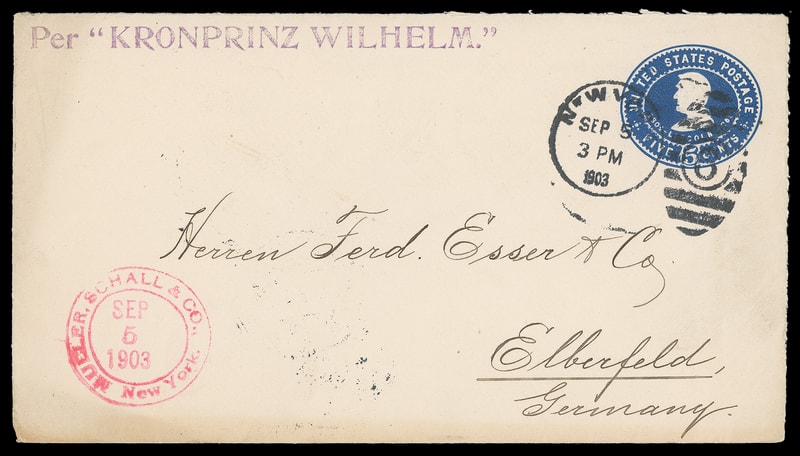 Per "KRONPRINZ WILHELM."
UNITED STATES POSTAGE
FIVE 5 CENTS
NEW Y
SEP 5
3 PM
1903
Herren Ferd. Esser & Co
Elberfeld,
Germany.
MULLER, SCHALL & CO.,
SEP
5
1903
New York.